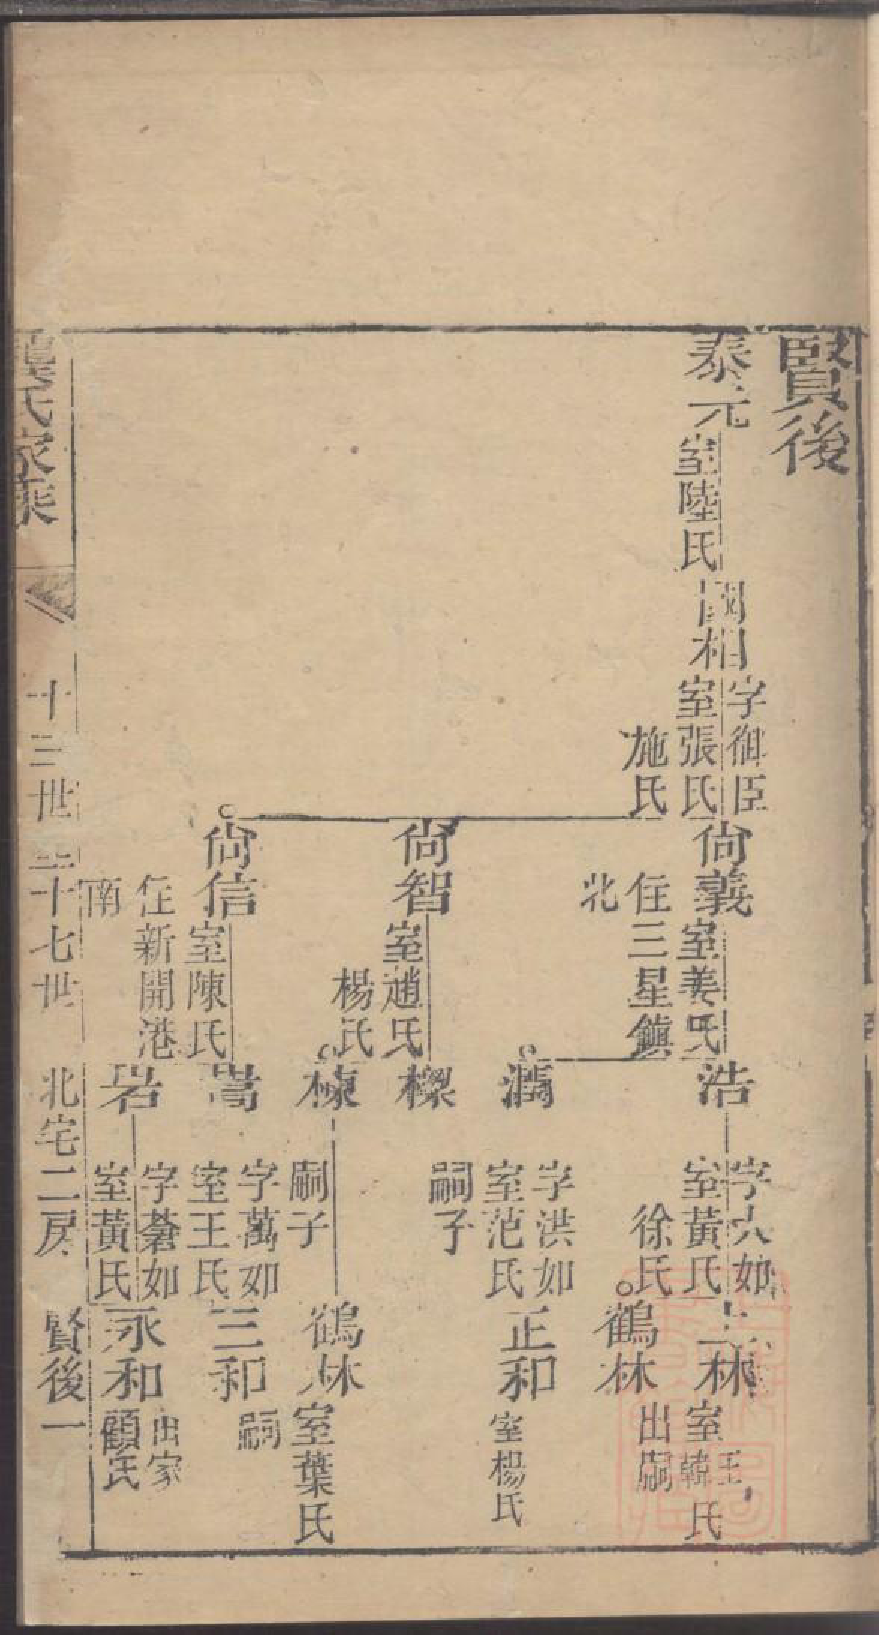 賢後
泰元
室陸氏
國相
字御臣
室張氏
施氏
尙義
室姜氏
住三星鎮
北
尙智
室趙氏
楊氏
尙信
室陳氏
住新開港
南
浩
字大如
室黃氏
徐氏
澙
字洪如
室范氏
嗣子
樑
棟
嗣子
嵩
字萬如
室王氏
岩
字蒼如
室黃氏
上林
室王韓氏
鶴林
出嗣
正和
室楊氏
鶴林
室葉氏
三和
嗣
永和
出家
顧氏
龔氏家乘
十三世至十七世
北宅二房
賢後一